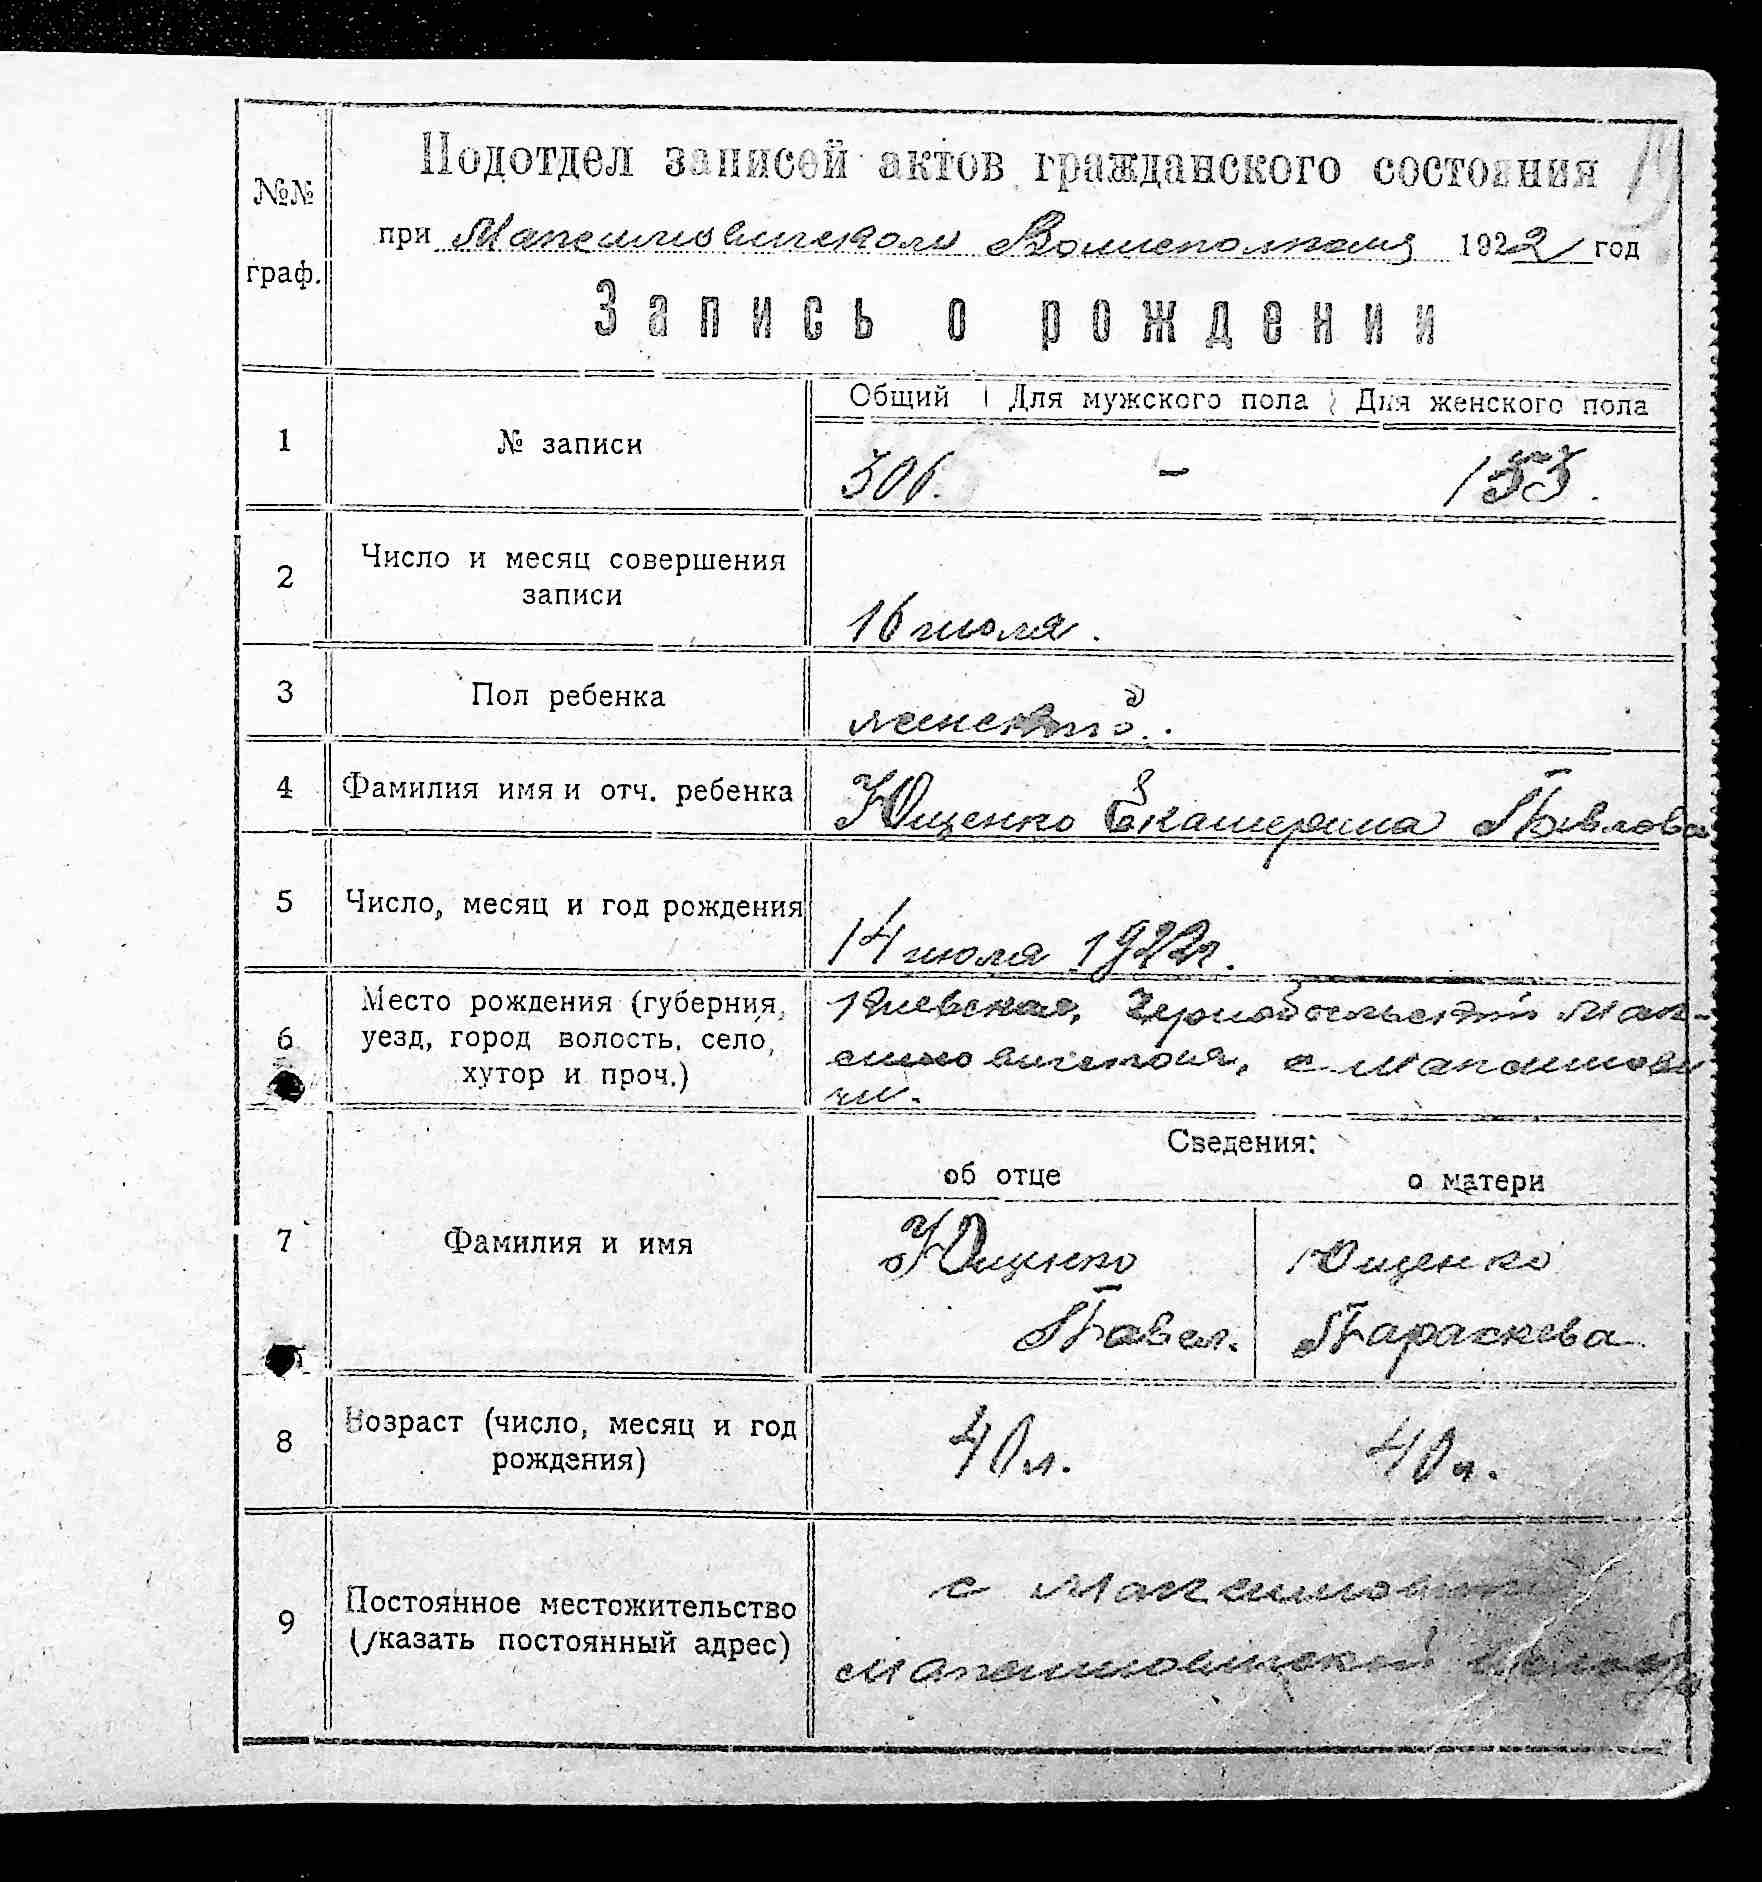 №№
граф.
Подотдел записей актов гражданского состояния
при Максимовическом Волисполкоме 1922 год
Запись о рождении
Общий Для мужского пола Для женского пола
1 № записи 306. - 153.
2 Число и месяц совершения
записи
16 июля.
3 Пол ребенка женский.
4 Фамилия имя и отч. ребенка Ющенко Екатерина Павлова
5 Число, месяц и год рождения 14 июля 1922г.
6 Место рождения (губерния,
уезд, город волость, село,
хутор и проч.)
Киевская, Чернобыльский Мак-
симовическая, с. Максимови
чи.
Сведения:
об отце о матери
7 Фамилия и имя
Ющенко Ющенко
Павел. Параскева
8 Возраст (число, месяц и год
рождения)
40 л. 40 л.
9 Постоянное местожительство
(указать постоянный адрес)
с Максимовичи